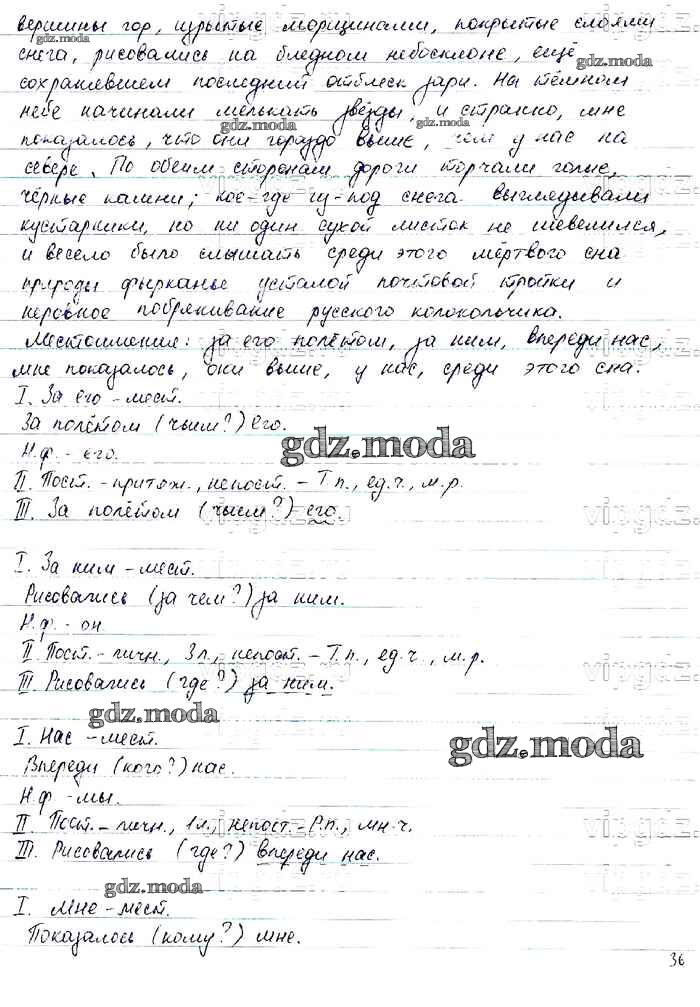 вершины гор, изрытые морщинами, покрытые слоями
снега, рисовались на бледном небосклоне, ещё
gdz.moda
gdz.moda
сохранявшем последний отблеск зари. На тёмном
небе начинали мелькать звёзды, и странно, мне
gdz.moda
gdz.moda
показалось, что они гораздо выше, чем у нас на
севере. По обеим сторонам дороги торчали голые,
чёрные камни; кое-где из-под снега выглядывали
кустарники, но ни один сухой листок не шевелился,
и весело было слышать среди этого мёртвого сна
природы фырканье усталой почтовой тройки и
неровное побрякивание русского колокольчика.
Местоимение: за его полётом, за ним, впереди нас,
мне показалось, они выше, у нас, среди этого сна.
I. За его - мест.
За полётом (чьим?) его.
gdz.moda
Н.ф. - его.
II. Пост. - притяж., непост. - Т.п., ед.ч., м.р.
III. За полётом (чьим?) его.
vipgdz.ru
I. За ним - мест.
Рисовались (за чем?) за ним.
Н.ф. - он
II. Пост. - личн., 3л., непост. - Т.п., ед.ч., м.р.
III. Рисовались (где?) за ним.
gdz.moda
I. Нас - мест.
gdz.moda
Впереди (кого?) нас.
Н.ф - мы.
II. Пост. - личн., 1л., непост. - Р.п., мн.ч.
III. Рисовались (где?) впереди нас.
gdz.moda
I. Мне - мест.
Показалось (кому?) мне.
36